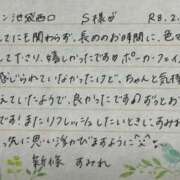 ン池袋西口 S様が R8.2.
してにも関わらず、長めのお時間に、色
してたさり、嬉しかったです ポーカーフェイ
感じられていなかったけど、ちゃんと気持
ったようで、良かったですのずっとお
です!またリフレッシュしたいときに、
っ先に思い浮かびますように^^
新條 すみれ